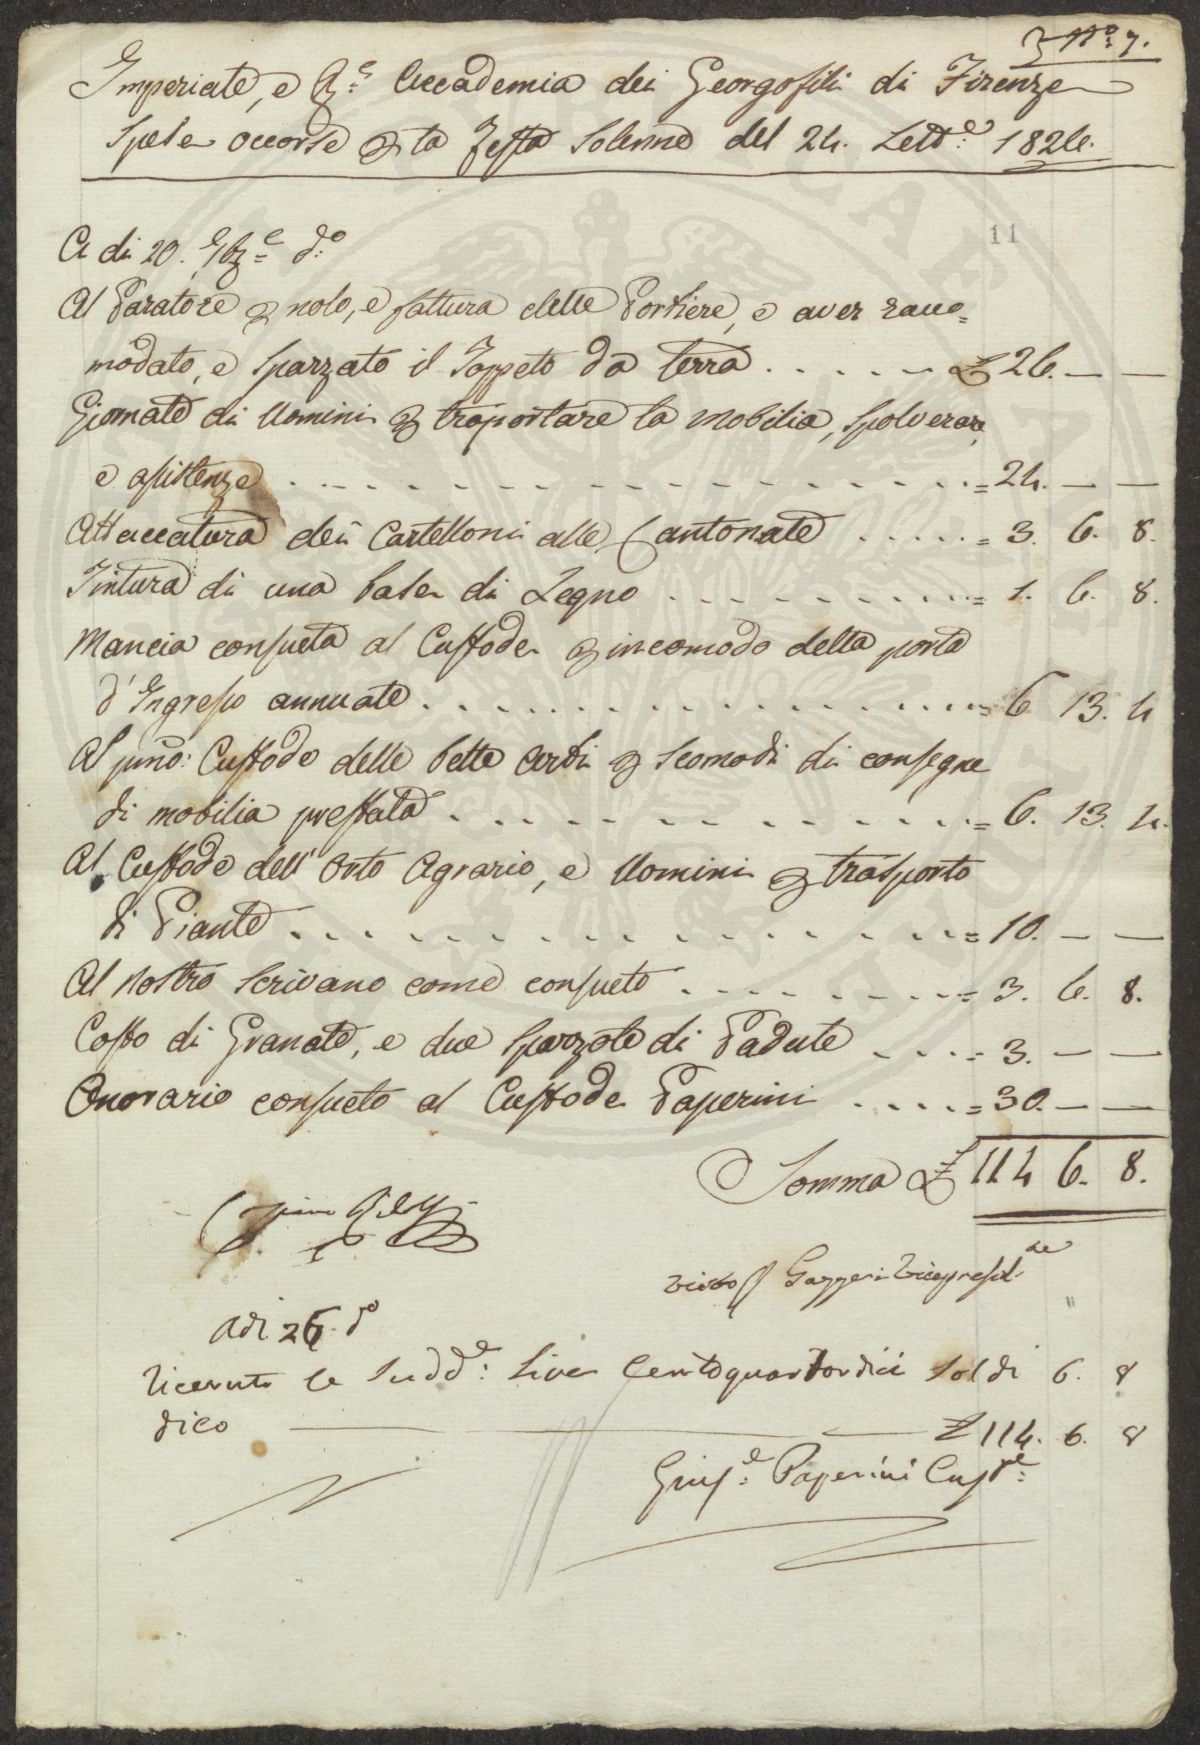 N.° 7.
Imperiale, e R.e Accademia dei Georgofili di Firenze
Spese occorse p la Festa Solenne del 24. Sett.e 1826.
11
A di 20. 9bre d.o
Al Paratore p nolo, e fattura delle Portiere, e aver racco=
modato, e spazzato il Tappeto da terra . . . . . . £ 26. — —
Giornate di Uomini p trasportare la mobilia, spolverare,
e assistenze . . . . . . . . . . . . . . . . = 24. — —
Attaccatura dei Cartelloni alle Cantonate . . . . . = 3. 6. 8.
Tintura di una base di Legno . . . . . . . . . = 1. 6. 8.
Mancia consueta al Custode p incomodo della porta
d'Ingresso annuale . . . . . . . . . . . . . . = 6 13. 4
Al pmo: Custode delle belle Arti p scomodi di consegne
di mobilia prestata . . . . . . . . . . . . . . = 6. 13. 4.
Al Custode dell'Orto Agrario, e Uomini p trasporto
di Piante . . . . . . . . . . . . . . . . . = 10. — —
Al nostro Scrivano come consueto . . . . . . . . = 3. 6. 8.
Costo di Granate, e due Spazzole di Padule . . . . = 3. — —
Onorario consueto al Custode Paperini . . . . = 30. — —
Somma £ 114 6. 8.
visto G Gazzeri Vicepresid.te
Adi 26. d.o
Ricevute le Sudd.e: Lire Centoquattordici Soldi 6. 8
dico £ 114. 6. 8
Gius.e Paperini Cust.e